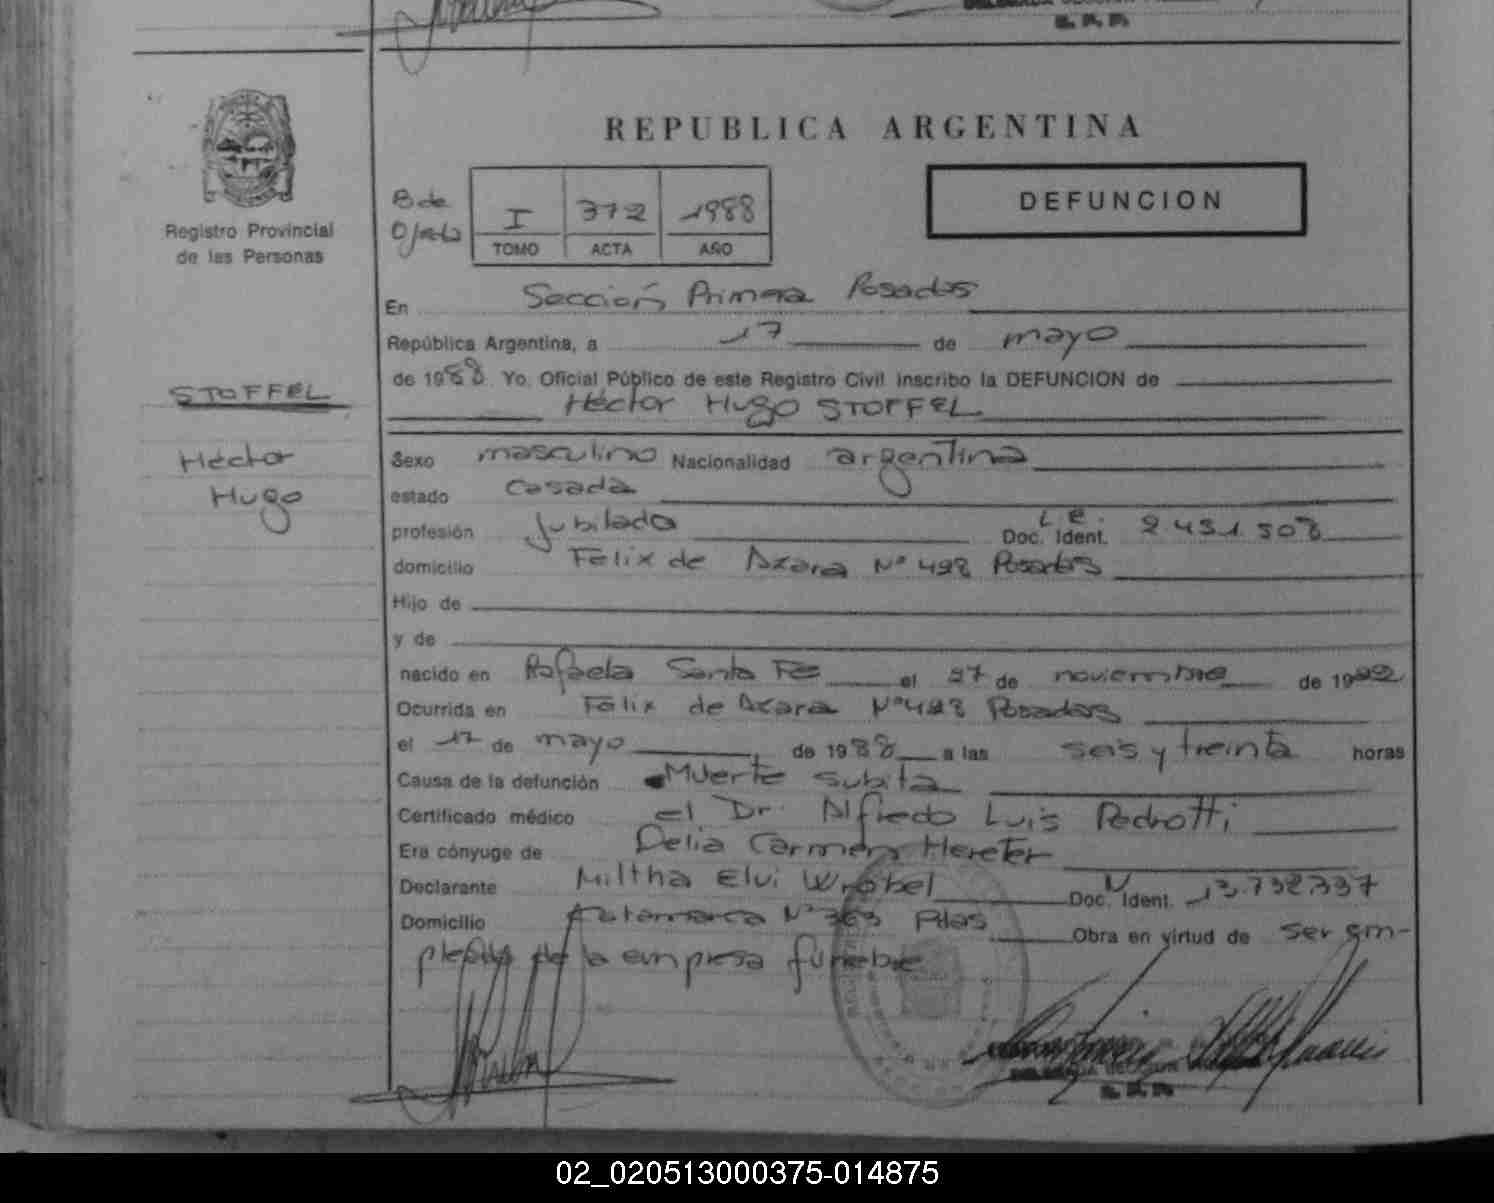 REPUBLICA ARGENTINA
DEFUNCION
8 de
I 372 1988
TOMO ACTA AÑO
Registro Provincial
de las Personas
En Sección Primera Posadas
República Argentina, a 17 de mayo
de 1988 Yo, Oficial Público de este Registro Civil inscribo la DEFUNCION de
Héctor Hugo STOFFEL
STOFFEL
Héctor
Hugo
Sexo masculino Nacionalidad argentina
estado casada
profesión jubilado L.E. Doc. Ident. 2.431.508
domicilio Félix de Azara Nº 498 Posadas
Hijo de
y de
nacido en Rafaela Santa Fe el 27 de noviembre de 19
Ocurrida en Félix de Azara Nº 498 Posadas
el 17 de mayo de 1988 a las seis y treinta horas
Causa de la defunción Muerte subita
Certificado médico el Dr. Alfredo Luis Pedrotti
Era cónyuge de Delia Carmen Hereter
Declarante Miltha Elvi Wrobel Doc. Ident. 13.732.337
Domicilio Catamarca Nº 363 Pdas Obra en virtud de ser em-
pleado de la empresa fúnebre
02_020513000375-014875